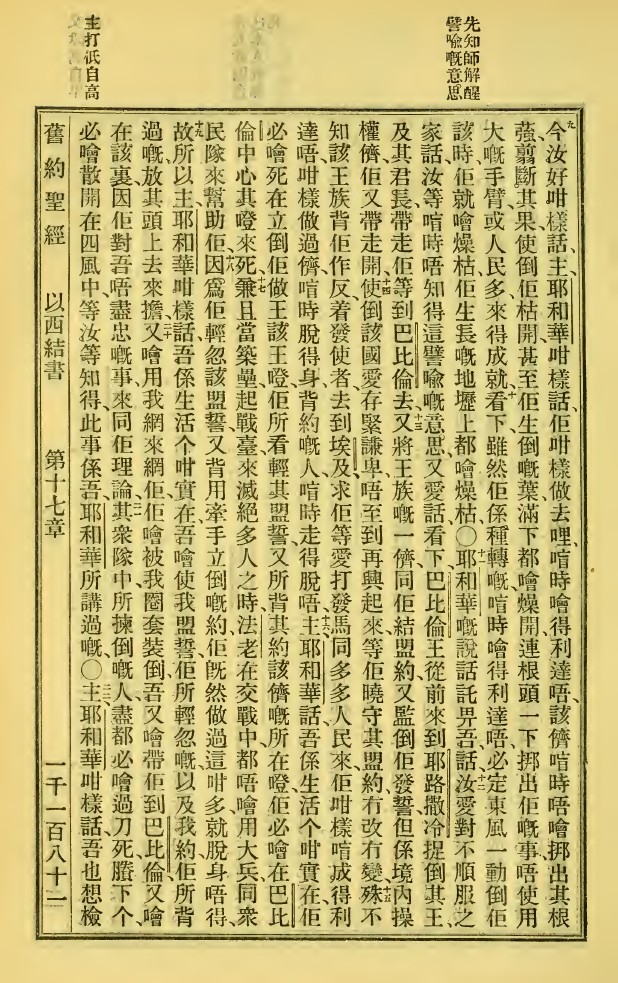 先知師解醒
譬喻嘅意思
主打汦自高
九今汝好咁樣話、主耶和華咁樣話、佢咁樣做去哩、喧時噲得利達唔、該儕喧時唔噲挷出其根
強、剪斷其果、使倒佢枯開、甚至佢生倒嘅葉、滿下都噲燥開、連根頭一下挷出佢嘅事、唔使用
大嘅手臂、或人民多來得成就、十看下、雖然佢係種轉嘅、喧時噲得利達唔、必定東風一動倒佢
該時佢就噲燥枯、佢生長嘅地壢上都噲燥枯、〇十一耶和華嘅說話託畀吾話、十二汝愛對不順服之
家話、汝等喧時唔知得這譬喻嘅意思、又愛話看下、巴比倫王從前來到耶路撒冷、捉倒其王、
及其君長、帶走佢等到巴比倫去、十三又將王族嘅一儕、同佢結盟約、又監倒佢發誓、但係境內操
權儕、佢又帶走開、十四使倒該國愛存緊謙卑、唔至到再興起來、等佢曉守其盟約、冇改冇變、十五殊不
知該王族背佢作反、着發使者去到埃及、求佢等愛打發馬同多多人民來、佢咁樣喧成得利
達唔、咁樣做過儕、喧時脫得身、背約嘅人、喧時走得脫唔、十六主耶和華話、吾係生活个咁實在、佢
必噲死在立倒佢做王該王嶝、佢所看輕其盟誓、又所背其約該儕嘅所在嶝、佢必噲在巴比
倫中心其嶝來死、十七兼且當築壘起戰臺、來滅絕多人之時、法老在交戰中、都唔噲用大兵同衆
民隊來幫助佢、十八因爲佢輕忽該盟誓、又背用牽手立倒嘅約、佢旣然做過這咁多、就脫身唔得、
十九故所以主耶和華咁樣話、吾係生活个咁實在、吾噲使我盟誓、佢所輕忽嘅、以及我約、佢所背
過嘅、放其頭上去來擔、二十又噲用我網來網佢、佢噲被我圈套裝倒、吾又噲帶佢到巴比倫、又噲
在該裏、因佢對吾唔盡忠嘅事、來同佢理論、二一其衆隊中所揀倒嘅人、盡都必噲過刀死、賸下个、
必噲散開在四風中、等汝等知得、此事係吾耶和華所講過嘅、〇二二主耶和華咁樣話、吾也想檢
舊約聖經 以西結書 第十七章 一千一百八十二